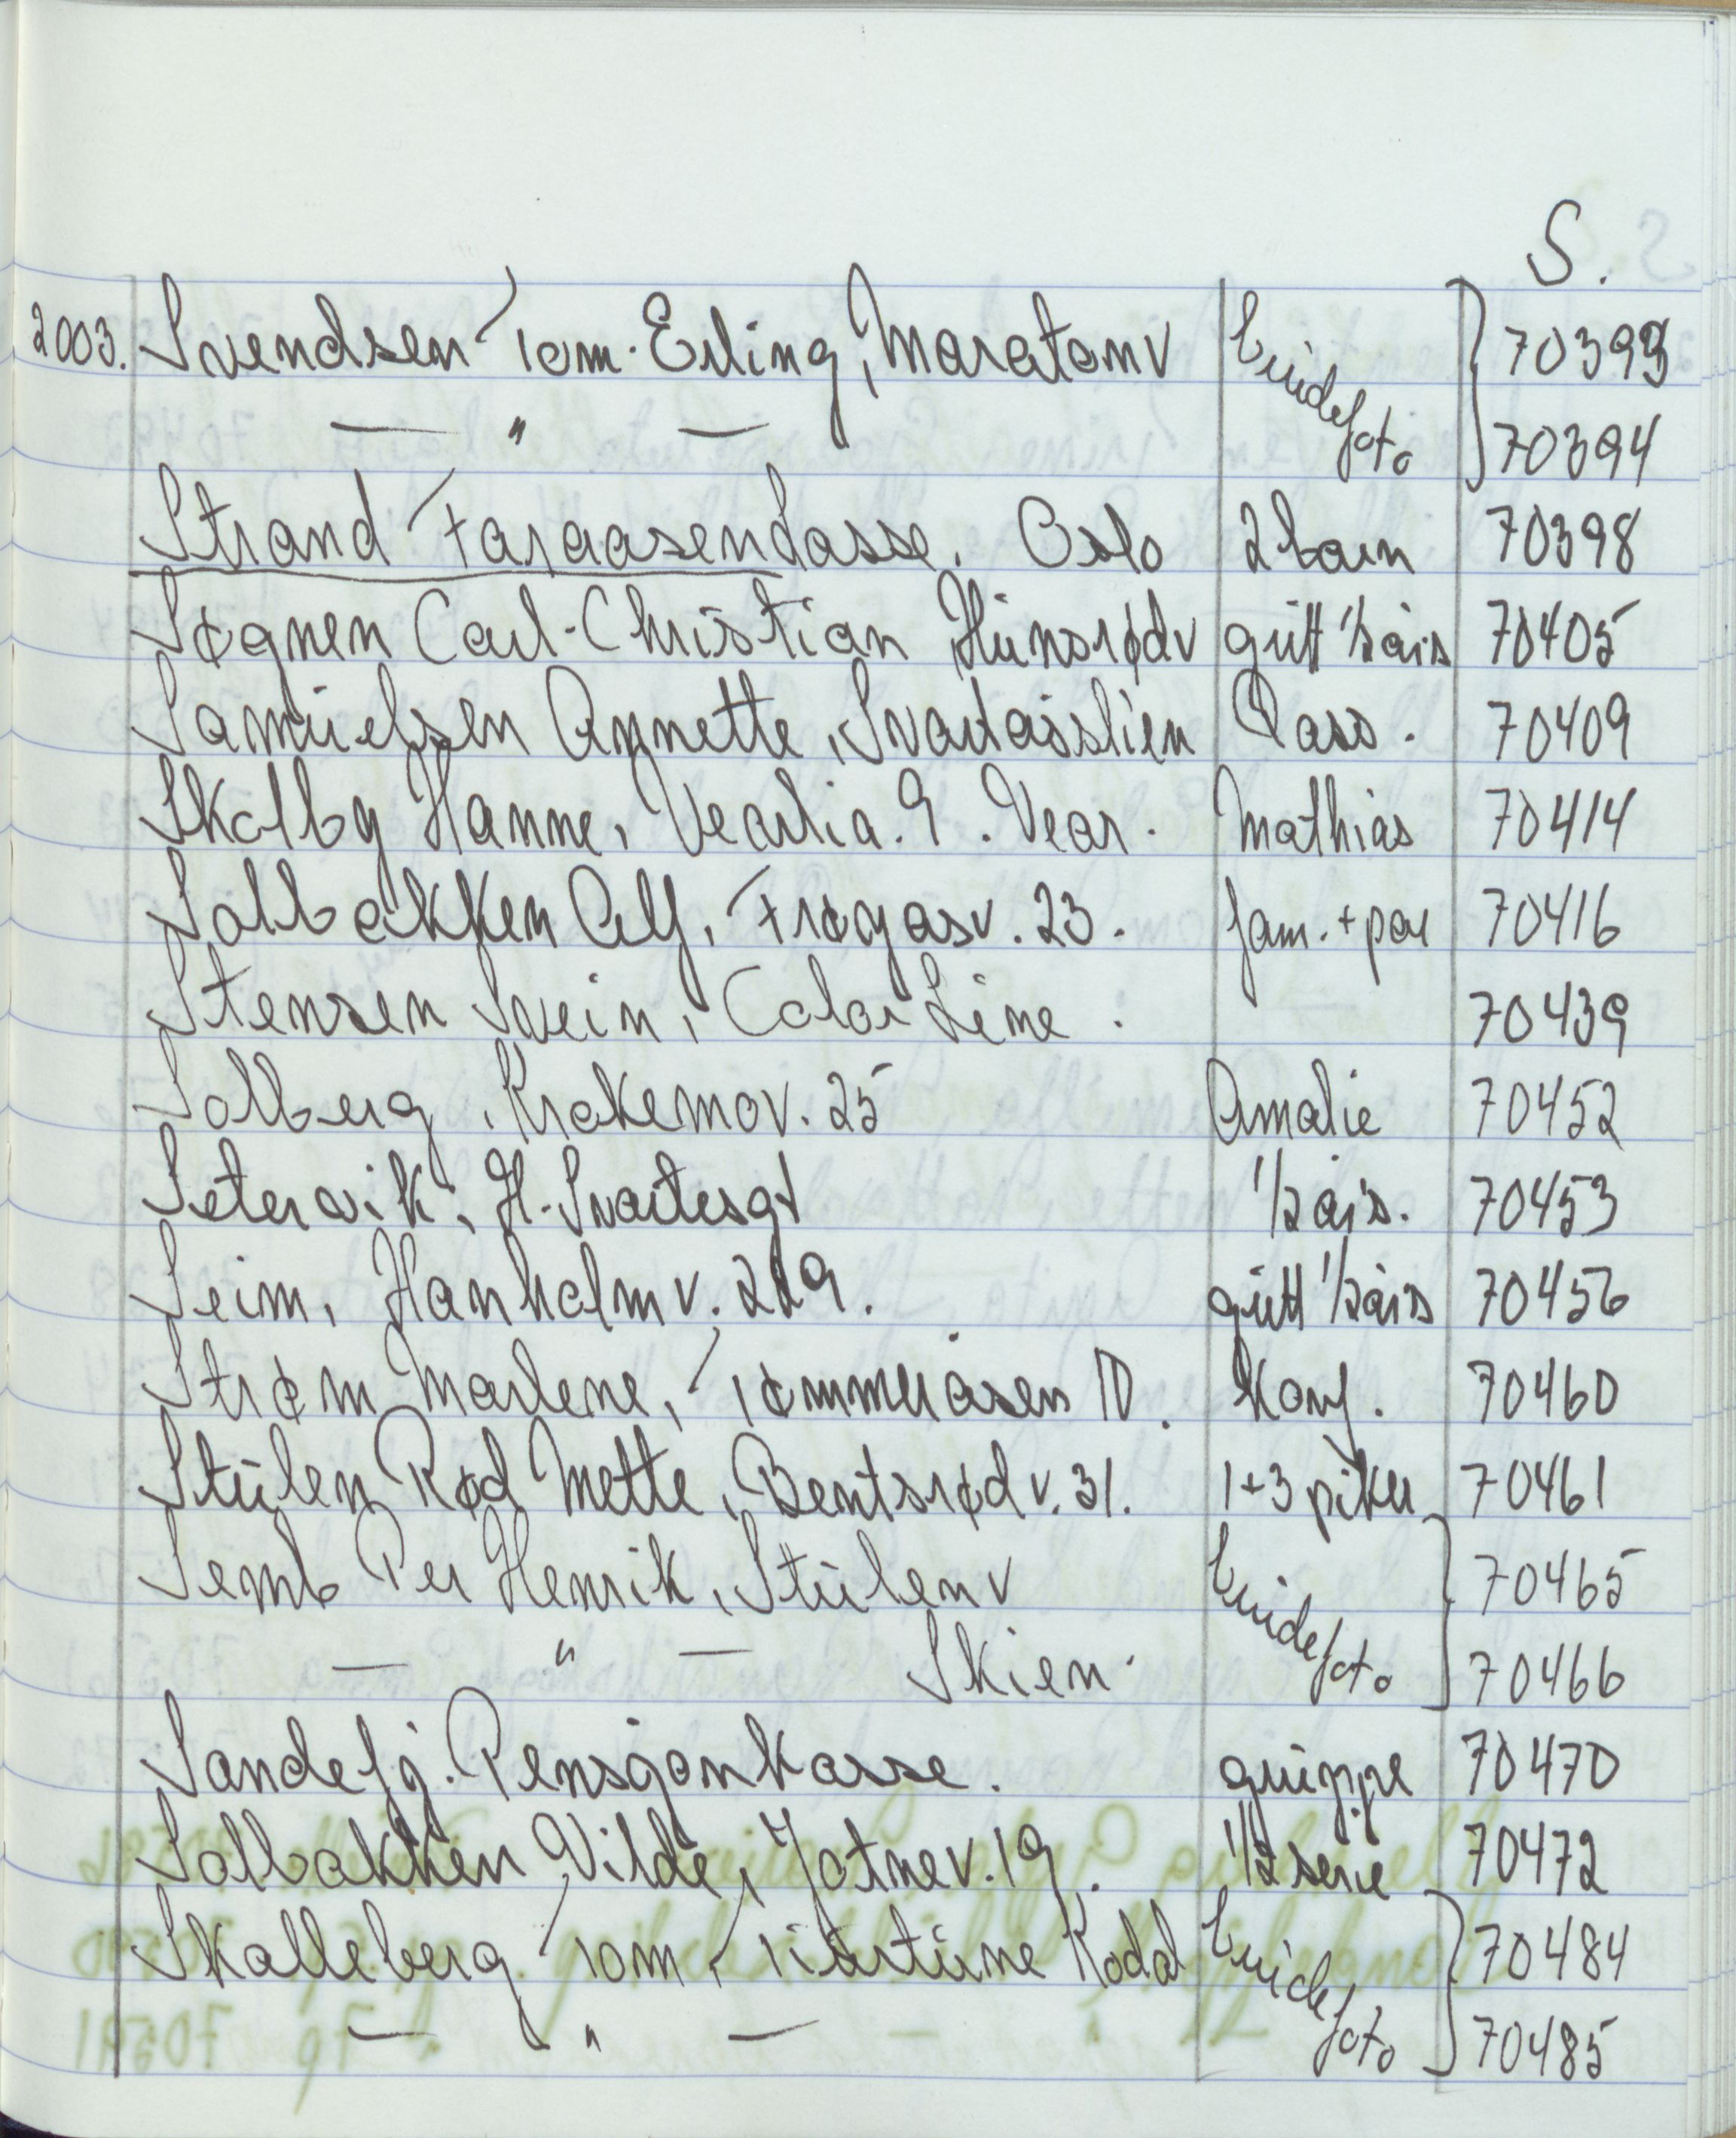 S.
2003. Svendsen Tom-Erling, Maratonv Brudefoto 70393
— " — 70394
Strand Faraasen Lasse. Oslo 2 barn 70398
Søgnen Carl-Christian Hunsrødv gutt 1/2 års 70405
Samuelsen Annette, Svartåsslien Pass. 70409
Skolby Hanne, Vearlia. 9. Vear. Mathias 70414
Solbakken Alf, Frøyasv. 23. fam. + par 70416
Stensen Svein, Color Line. 70439
Solberg, Krokemov. 25 Amalie 70452
Setervik, H. Svartesgt 1/2 års. 70453
Seim, Hanholmv. 229. gutt 1/2 års 70456
Strøm Marlene, Tømmeråsen 10. Konf. 70460
Stulen Rød Mette, Bentsrødv. 31. 1+3 piker 70461
Semb Per Henrik, Stulenv Brudefoto 70465
— " — Skien. 70466
Sandefj. Pensjonkasse. gruppe 70470
Solbakken Vilde, Jotnev. 19. 1/2 serie 70472
Skalleberg Tom, Trartune Kodal Brudefoto 70484
— " — 70485